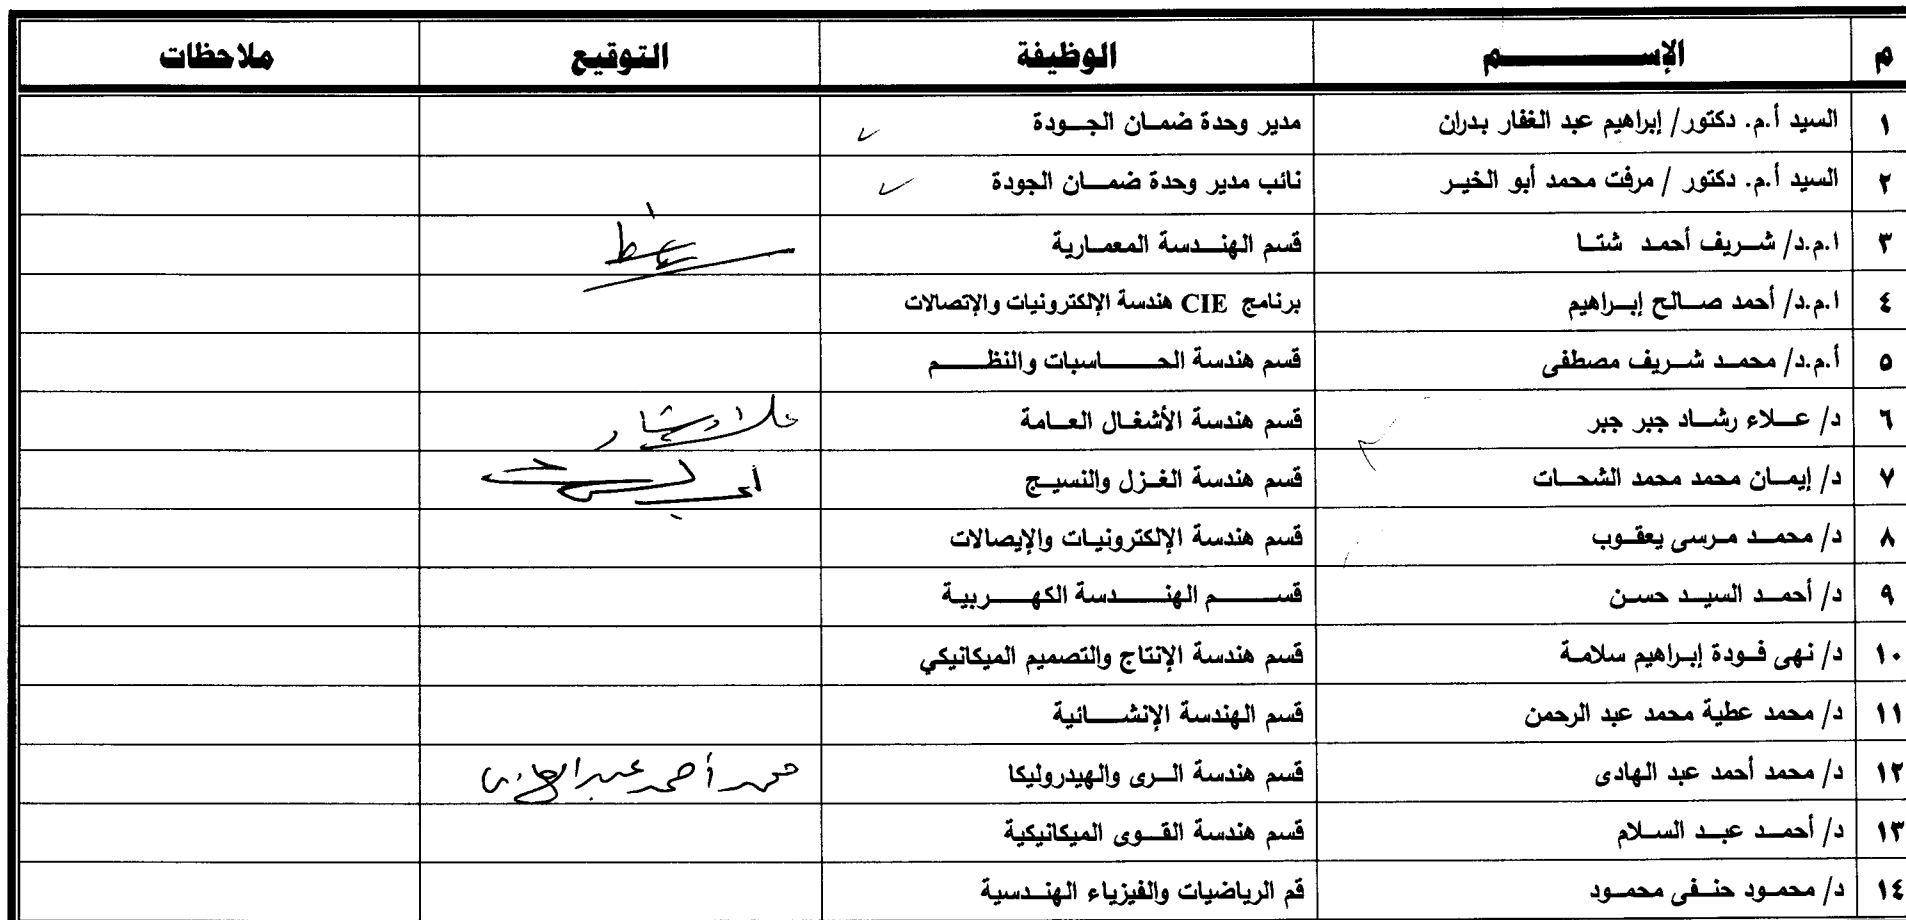 م الإســـــــم الوظيفة التوقيع ملاحظات
١ السيد أ.م. دكتور/ إبراهيم عبد الغفار بدران مدير وحدة ضمـان الجـــودة
٢ السيد أ.م. دكتور / مرفت محمد أبو الخيـر نائب مدير وحدة ضمـــان الجودة
٣ ا.م.د/ شــريف أحمد شتــا قسم الهنـــدسة المعمـارية
٤ ا.م.د/ أحمد صـــالح إبـــراهيم برنامج CIE هندسة الإلكترونيات والإتصالات
٥ أ.م.د/ محمـد شــريف مصطفى قسم هندسة الحــــــاسبات والنظـــــم
٦ د/ عـــلاء رشـــاد جبر جبر قسم هندسة الأشغـال العـــامة علاء رشاد
٧ د/ إيمــان محمد محمد الشحــات قسم هندسة الغـزل والنسيــج
٨ د/ محمــد مـرسى يعقــوب قسم هندسة الإلكترونيـات والإيصالات
٩ د/ أحمــد السيــد حسـن قســـــــم الهنــــــدسة الكهــــــربيـة
١٠ د/ نهى فـودة إبـراهيم سلامـة قسم هندسة الإنتاج والتصميم الميكانيكي
١١ د/ محمد عطية محمد عبد الرحمن قسم الهندسة الإنشـــــائية
١٢ د/ محمد أحمد عبد الهادى قسم هندسة الــرى والهيدروليكا محمد أحمد عبد الهادى
١٣ د/ أحمــد عبــد الســلام قسم هندسة القــوى الميكانيكية
١٤ د/ محمــود حنــفى محمــود قم الرياضيات والفيزياء الهنــدسية